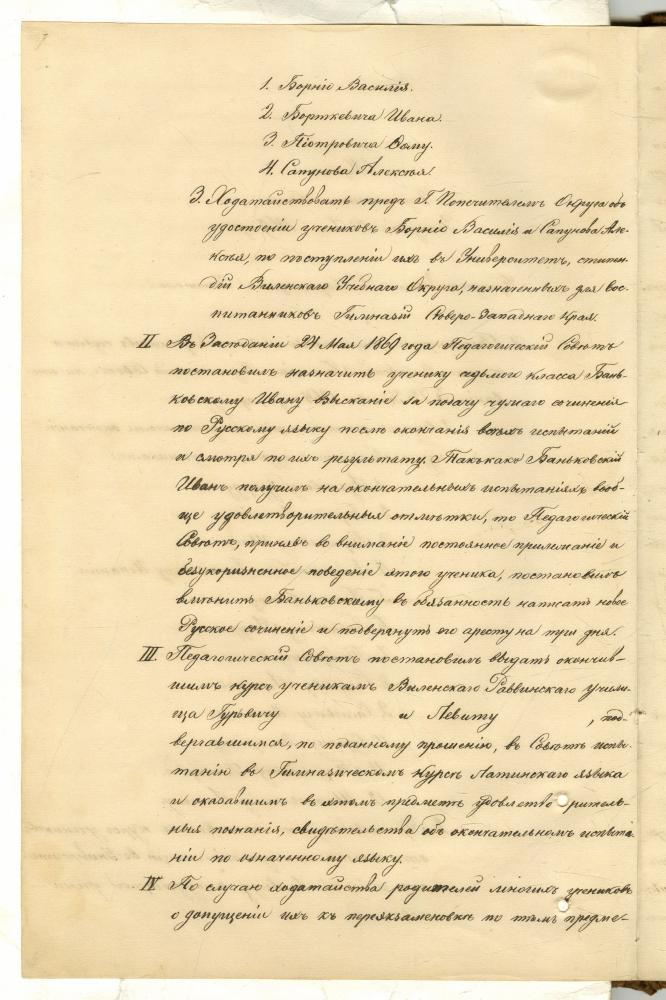 1. Борніо Василія.
2. Борткевича Ивана.
3. Піотровича Ѳому.
4. Сапунова Алексѣя.
3. Ходатайствовать предъ Г. Попечителемъ Округа объ
удостоеніи учениковъ Борніо Василія и Сапунова Але-
ксѣя, по поступленіи ихъ въ Университетъ, стипен-
дій Виленскаго Учебнаго Округа, назначенныхъ для вос-
питанниковъ Гимназій Сѣверо-Западнаго Края.
II Въ Засѣданіи 24 Мая 1869 года Педагогическій Совѣтъ
постановилъ назначить ученику седьмого класса Бань-
ковскому Ивану взысканіе за подачу чужаго сочиненія
по Русскому языку послѣ окончанія всѣхъ испытаній
и смотря по ихъ результату. Такъ какъ Баньковскій
Иванъ получилъ на окончательныхъ испытаніяхъ вооб-
ще удовлетворительныя отмѣтки, то Педагогическій
Совѣтъ, принявъ во вниманіе постоянное прилежаніе и
безукоризненное поведеніе этого ученика, постановилъ
вмѣнить Баньковскому въ обязанность написать новое
Русское сочиненіе и подвергнуть его аресту на три дня.
III Педагогическій Совѣтъ постановилъ выдать окончив-
шимъ курсъ ученикамъ Виленскаго Раввинскаго Учили-
ща Гурвичу и Левиту , под-
вергавшимся, по поданному прошенію, въ Совѣтѣ испы-
танію въ Гимназическомъ курсѣ Латинскаго языка
и оказавшимъ въ этомъ предметѣ удовлетворитель-
ныя познанія, свидѣтельства объ окончательномъ испыта-
ніи по означенному языку.
IV По случаю ходатайства родителей многихъ учениковъ
о допущеніи ихъ къ переэкзаменовкѣ по тѣмъ предме-